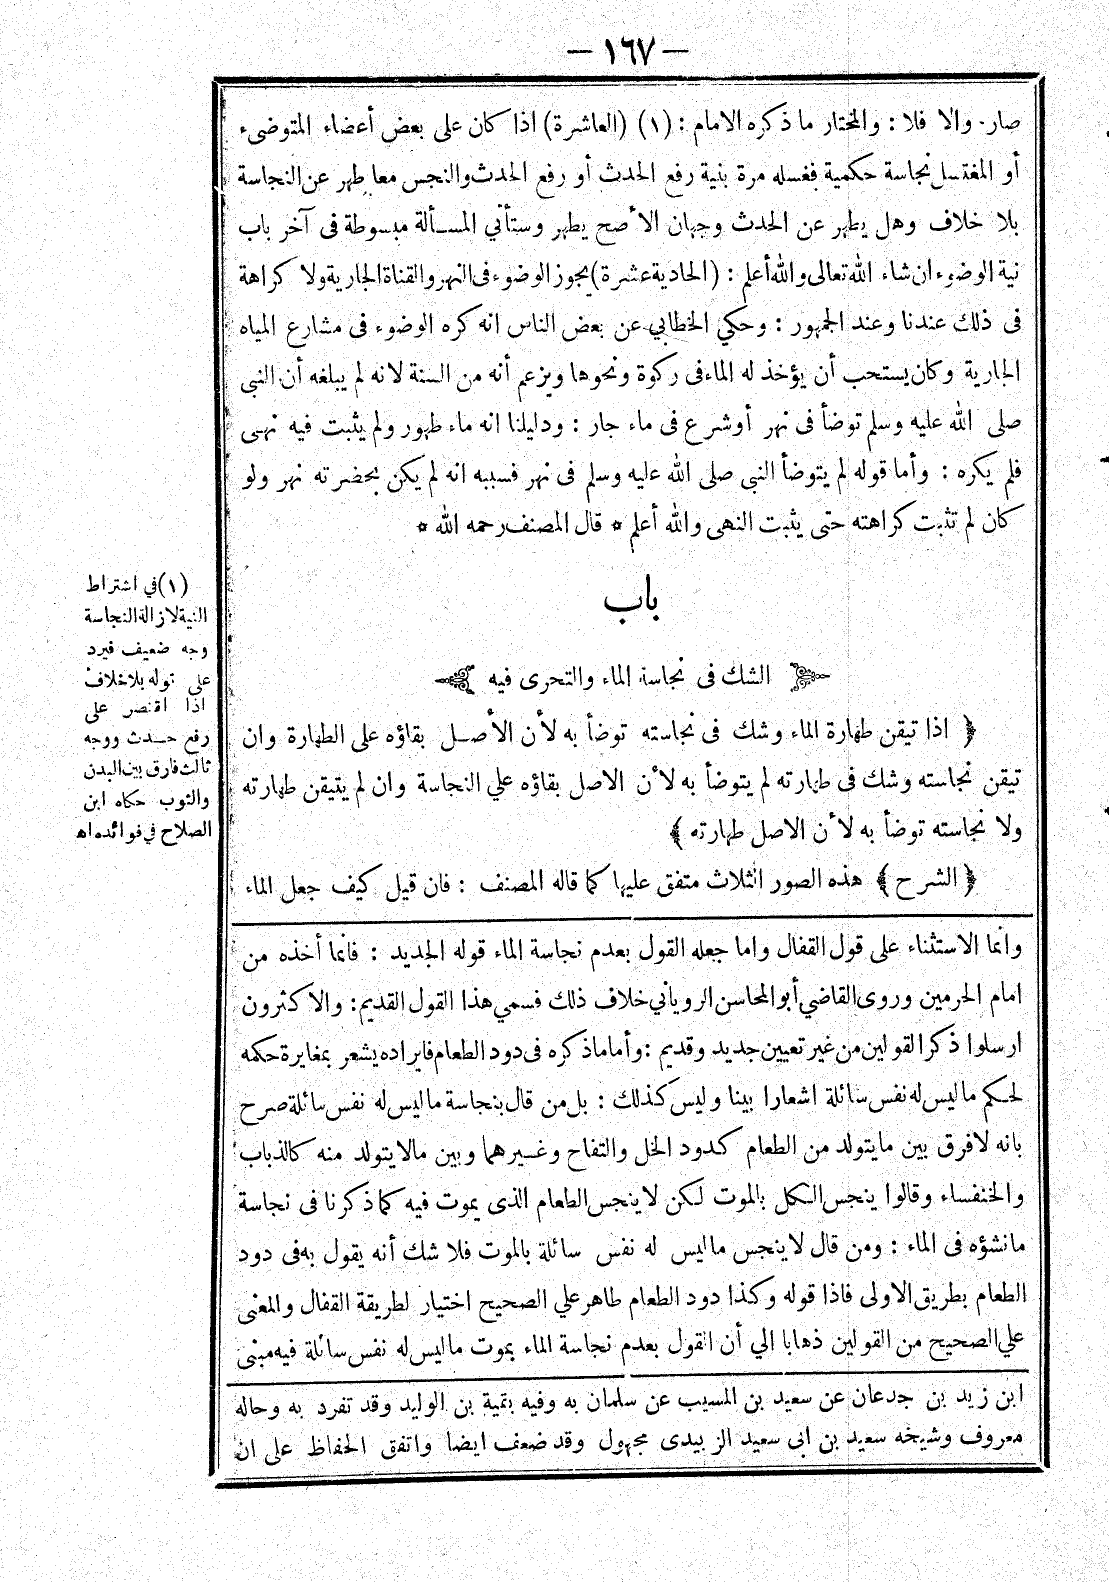 — ١٦٧ —
صار. والا فلا : والمختار ما ذكره الامام : (١) (العاشرة) اذا كان على بعض أعضاء المتوضىء
أو المغتسل نجاسة حكمية فغسله مرة بنية رفع الحدث أو رفع الحدث والنجس معا طهر عن النجاسة
بلا خلاف وهل يطهر عن الحدث وجهان الأصح يطهر وستأتي المسألة مبسوطة فى آخر باب
نية الوضوء ان شاء الله تعالى والله أعلم : (الحادية عشرة) يجوز الوضوء فى النهر والقناة الجارية ولا كراهة
فى ذلك عندنا وعند الجمهور : وحكي الخطابي عن بعض الناس انه كره الوضوء فى مشارع المياه
الجارية وكان يستحب أن يؤخذ له الماء فى ركوة ونحوها ويزعم أنه من السنة لانه لم يبلغه أن النبي
صلى الله عليه وسلم توضأ فى نهر أو شرع فى ماء جار : ودليلنا انه ماء طهور ولم يثبت فيه نهى
فلم يكره : وأما قوله لم يتوضأ النبي صلى الله عليه وسلم فى نهر فسببه انه لم يكن بحضرته نهر ولو
كان لم تثبت كراهته حتى يثبت النهى والله أعلم * قال المصنف رحمه الله *
باب
الشك فى نجاسة الماء والتحرى فيه
﴿ اذا تيقن طهارة الماء وشك فى نجاسته توضأ به لأن الأصل بقاؤه على الطهارة وان
تيقن نجاسته وشك فى طهارته لم يتوضأ به لأن الاصل بقاؤه علي النجاسة وان لم يتيقن طهارته
ولا نجاسته توضأ به لأن الاصل طهارته ﴾
﴿ الشرح ﴾ هذه الصور الثلاث متفق عليها كما قاله المصنف : فان قيل كيف جعل الماء
(١) في اشتراط
النية لازالة النجاسة
وجه ضعيف فيرد
على قوله بلا خلاف
اذا اقتصر على
رفع حدث ووجه
ثالث فارق بين البدن
والثوب حكاه ابن
الصلاح في فوائده اه
وانما الاستثناء على قول القفال واما جعله القول بعدم نجاسة الماء قوله الجديد : فانما أخذه من
امام الحرمين وروى القاضي أبو المحاسن الروياني خلاف ذلك فسمي هذا القول القديم : والاكثرون
ارسلوا ذكر القولين من غير تعيين جديد وقديم : وأما ماذكره فى دود الطعام فايراده يشعر بمغايرة حكمه
لحكم ما ليس له نفس سائلة اشعارا بينا وليس كذلك : بل من قال بنجاسة ما ليس له نفس سائلة صرح
بانه لا فرق بين ما يتولد من الطعام كدود الخل والتفاح وغيرهما وبين مالا يتولد منه كالذباب
والخنفساء وقالوا ينجس الكل بالموت لكن لا ينجس الطعام الذى يموت فيه كما ذكرنا فى نجاسة
ما نشؤه فى الماء : ومن قال لا ينجس ما ليس له نفس سائلة بالموت فلا شك أنه يقول به فى دود
الطعام بطريق الاولى فاذا قوله وكذا دود الطعام طاهر علي الصحيح اختيار لطريقة القفال والمعنى
علي الصحيح من القولين ذهابا الي أن القول بعدم نجاسة الماء بموت ما ليس له نفس سائلة فيه مبنى
ابن زيد بن جدعان عن سعيد بن المسيب عن سلمان به وفيه بقية بن الوليد وقد تفرد به وحاله
معروف وشيخه سعيد بن ابى سعيد الزبيدى مجهول وقد ضعف ايضا واتفق الحفاظ على ان